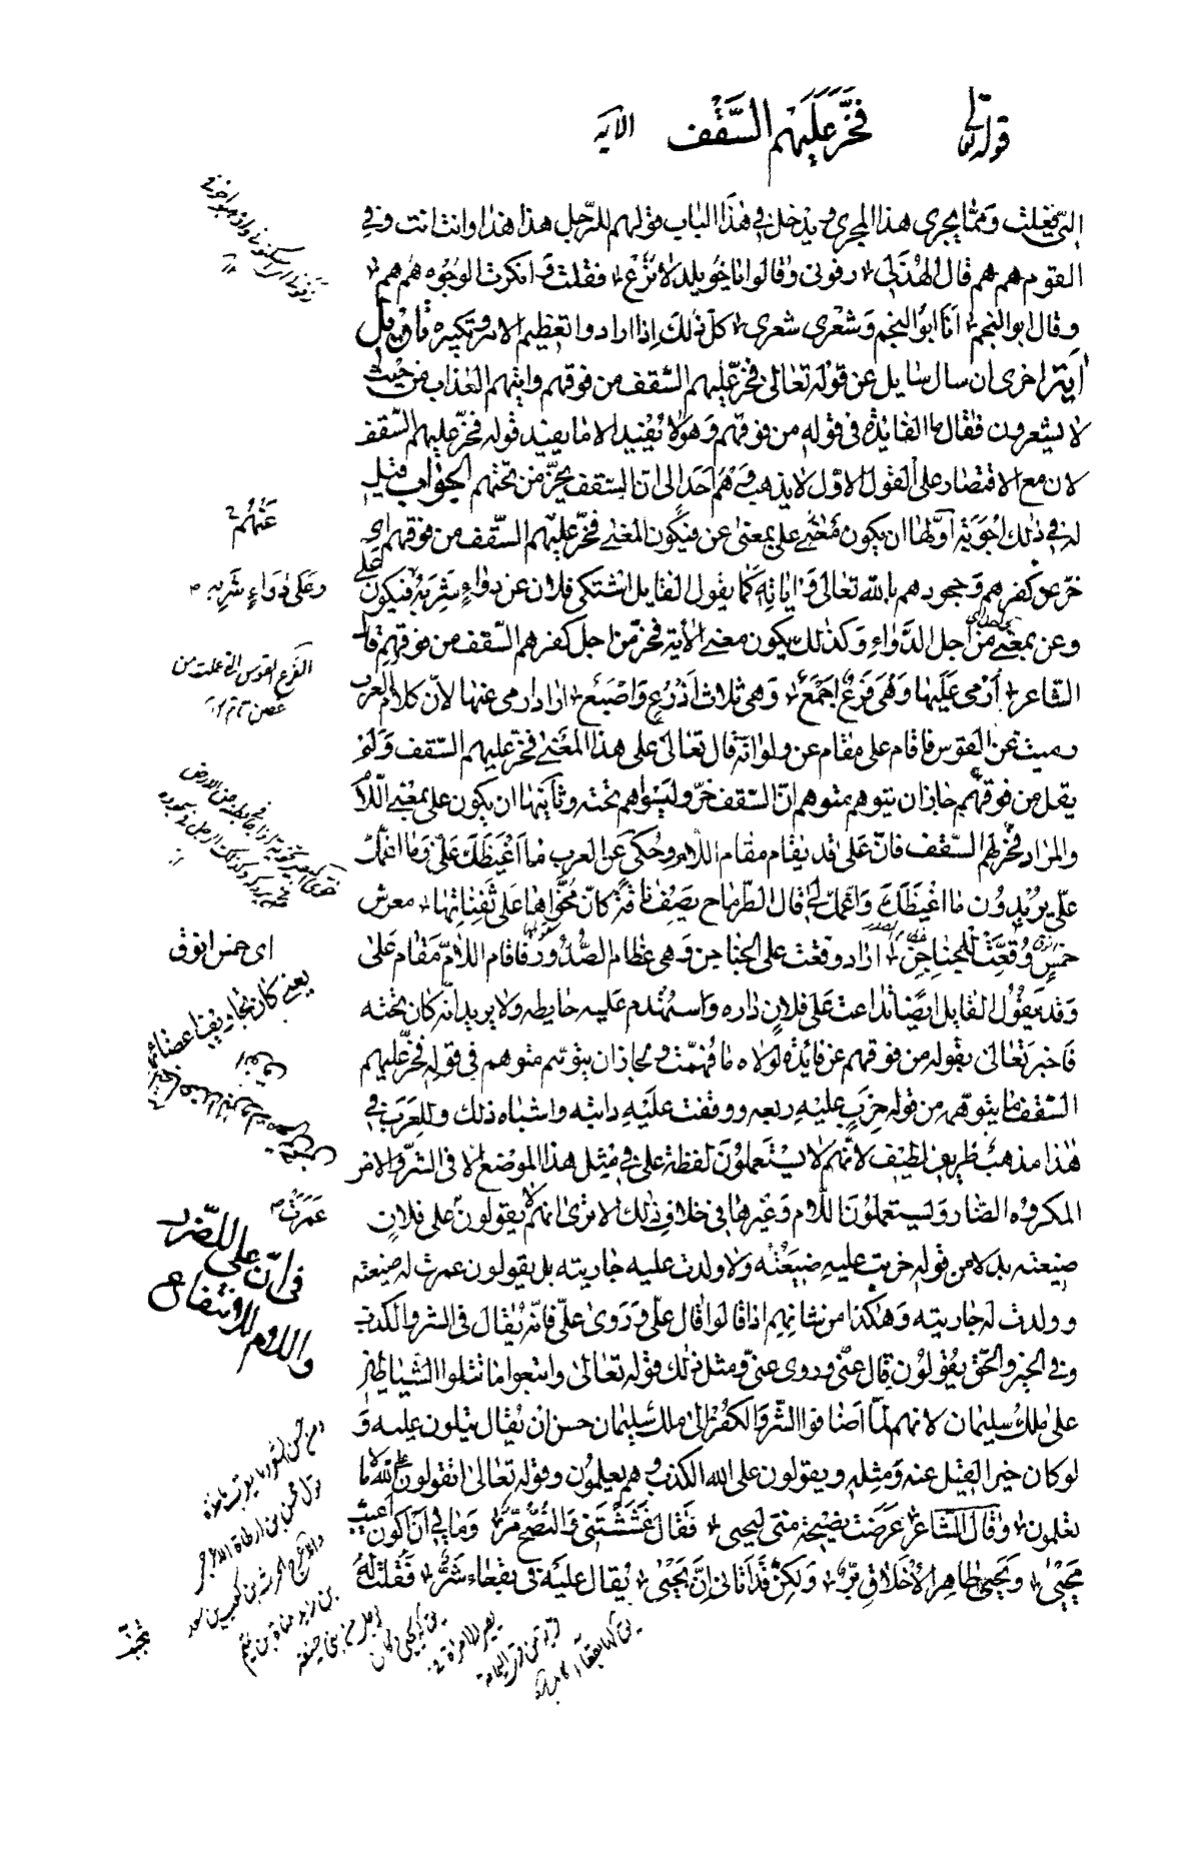 قوله تعالى فخرّ عليهم السّقف الآية
التي فعلت ومما يجري هذا المجرى ويدخل في هذا الباب قولهم للرّجل هذا هذا وانت انت وفي
القوم هم هم قال الهذلي رفوني وقالوا يا خويلد لا ترع فقلت وانكرت الوجوه هم هم
وقال ابو النجم انا ابو النجم وشعري شعري كل ذلك اذا ارادوا تعظيم الامر وتكبيره تاويل
اية اخرى ان سال سايل عن قوله تعالى فخرّ عليهم السّقف من فوقهم واتيهم العذاب من حيث
لا يشعرون فقال ما الفائدة في قوله من فوقهم وهو لا يفيد الا ما يفيد قوله فخرّ عليهم السّقف
لان مع الاقتصار على القول الاوّل لا يذهب وهم احد الى ان السّقف يخرّ من تحتهم الجواب قيل
له في ذلك اجوبة اوّلها ان يكون معنى على بمعنى عن فيكون المعنى فخرّ عليهم السّقف من فوقهم اي
خرّ عن كفرهم وجحودهم بالله تعالى واياته كما يقول القايل اشتكى فلان عن دواء شربه فيكون على
وعن بمعنى من اجل الدّواء وكذلك يكون معنى الاية فخرّ من اجل كفرهم السّقف من فوقهم قال
الشاعر ارمي عليها وهي فرع اجمع وهي ثلاث اذرع واصبع اراد ارمي عنها لانّ كلام العرب
رميت عن القوس فاقام على مقام عن ولو انّه قال تعالى على هذا المعنى فخرّ عليهم السّقف ولم
يقل من فوقهم جاز ان يتوهم متوهم انّ السّقف خرّ وليسوا هم تحته وثانيها ان يكون على بمعنى اللام
والمراد فخرّ لهم السّقف فانّ على قد يقام مقام اللام وحكي عن العرب ما اغيظك عليّ وما اغمّك
عليّ يريدون ما اغيظك لي واغمّك لي قال الطّرماح يصف ناقة كانّ مخوّاها على ثفناتها معرّس
خمس وقّعت للجناجن اراد وقعت على الجناجن وهي عظام الصّدور فاقام اللام مقام على
وقد يقول القايل ايضا تداعت على فلان داره واستهدم عليه حايطه ولا يريد انّه كان تحته
فاخبر تعالى بقوله من فوقهم عن فائدة لولاه ما فهمت ولجاز ان يتوهّم متوهم في قوله فخرّ عليهم
السّقف ما يتوهّم من قوله خرب عليه ربعه ووقفت عليه دابته واشباه ذلك وللعرب في
هذا مذهب ظريف لطيف لانّهم لا يستعملون لفظة على في مثل هذا الموضع الا في الشرّ والامر
المكروه الضّار ويستعملون اللام وغيرها في خلاف ذلك الا ترى انهم لا يقولون عمرت على فلان
ضيعته بدلا من قولهم خربت عليه ضيعته ولا ولدت عليه جاريته بل يقولون عمرت له ضيعته
وولدت له جاريته وهكذا من شانهم اذا قالوا قال عليّ وروى عليّ فانّه يقال في الشرّ والكذب
وفي الخير والحقّ يقولون قال عنّي وروى عنّي ومثل ذلك قوله تعالى واتبعوا ما تتلوا الشياطين
على ملك سليمان لانهم لمّا اضافوا الشرّ والكفر الى ملك سليمان حسن ان يقال يتلون عليه و
لو كان خيرا لقيل عنه ومثله ويقولون على الله الكذب وهم يعلمون وقوله تعالى اتقولون على الله ما لا
تعلمون وقال الشاعر عرضت نصيحة منّي ليحيى فقال غششتني والنّصح مرّ وما بي ان اكون اعيب
يحيى ويحيى طاهر الاخلاق برّ ولكن قد اتاني انّ يحيى يقال عليه في بقعاء شرّ فقلت له
عنهم
وعلى دواء شربه
الفرع القوس التي عملت من
غصن
اي خمس اينق
عمرت
في انّ على للضّرر
واللام للانتفاع
تجنّب